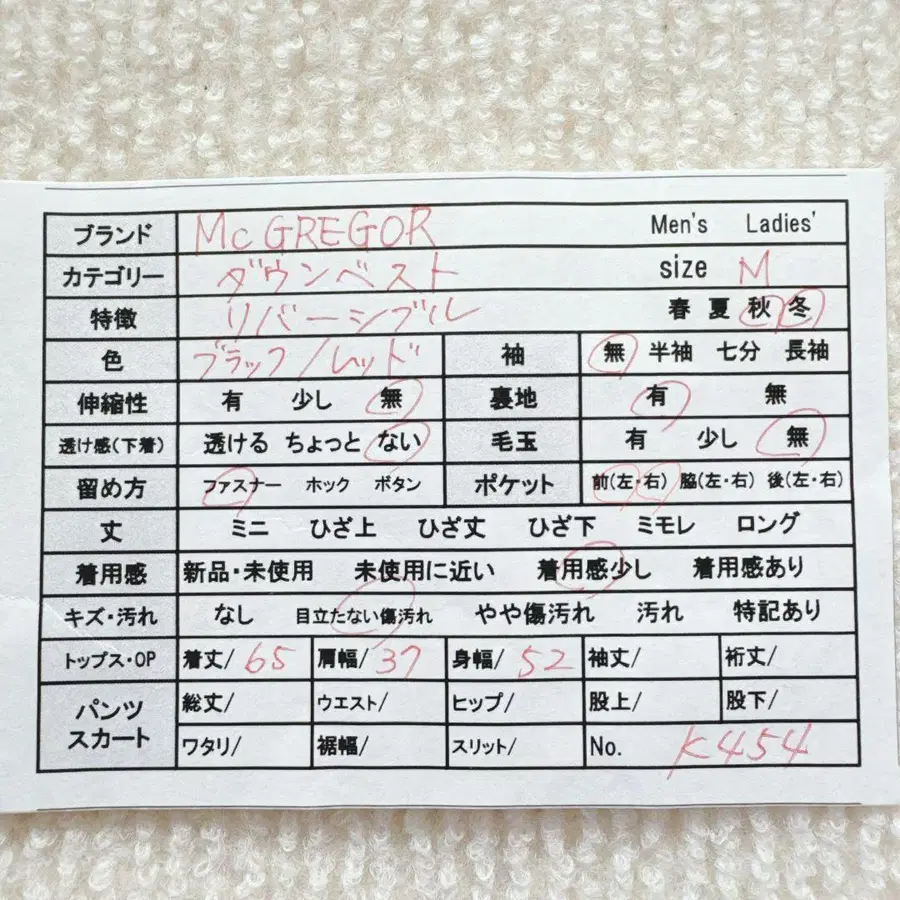 ブランド McGREGOR Men's Ladies'
カテゴリー ダウンベスト size M
特徴 リバーシブル 春 夏 秋 冬
色 ブラック/レッド 袖 無 半袖 七分 長袖
伸縮性 有 少し 無 裏地 有 無
透け感(下着) 透ける ちょっと ない 毛玉 有 少し 無
留め方 ファスナー ホック ボタン ポケット 前(左・右) 脇(左・右) 後(左・右)
丈 ミニ ひざ上 ひざ丈 ひざ下 ミモレ ロング
着用感 新品・未使用 未使用に近い 着用感少し 着用感あり
キズ・汚れ なし 目立たない傷汚れ やや傷汚れ 汚れ 特記あり
トップス・OP 着丈/ 65 肩幅/ 37 身幅/ 52 袖丈/ 裄丈/
パンツ スカート 総丈/ ウエスト/ ヒップ/ 股上/ 股下/
ワタリ/ 裾幅/ スリット/ No. K454